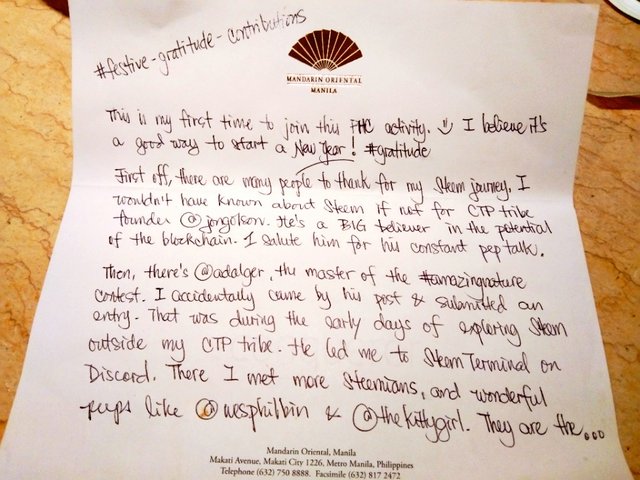 #festive-gratitude-contributions
MANDARIN ORIENTAL
MANILA
This is my first time to join this PHC activity. I believe it's
a good way to start a New Year! #gratitude
First off, there are many people to thank for my Steem journey. I
wouldn't have known about Steem if not for CTP tribe
founder @jongolson. He's a BIG believer in the potential
of the blockchain. I salute him for his constant pep talk.
Then, there's @adalger, the master of the #amazingnature
contest. I accidentally came by his post & submitted an
entry. That was during the early days of exploring Steem
outside my CTP tribe. He led me to Steem Terminal on
Discord. There I met more Steemians, and wonderful
peeps like @wesphilbin & @thekittygirl. They are the...
Mandarin Oriental, Manila
Makati Avenue, Makati City 1226, Metro Manila, Philippines
Telephone (632) 750 8888. Facsimile (632) 817 2472